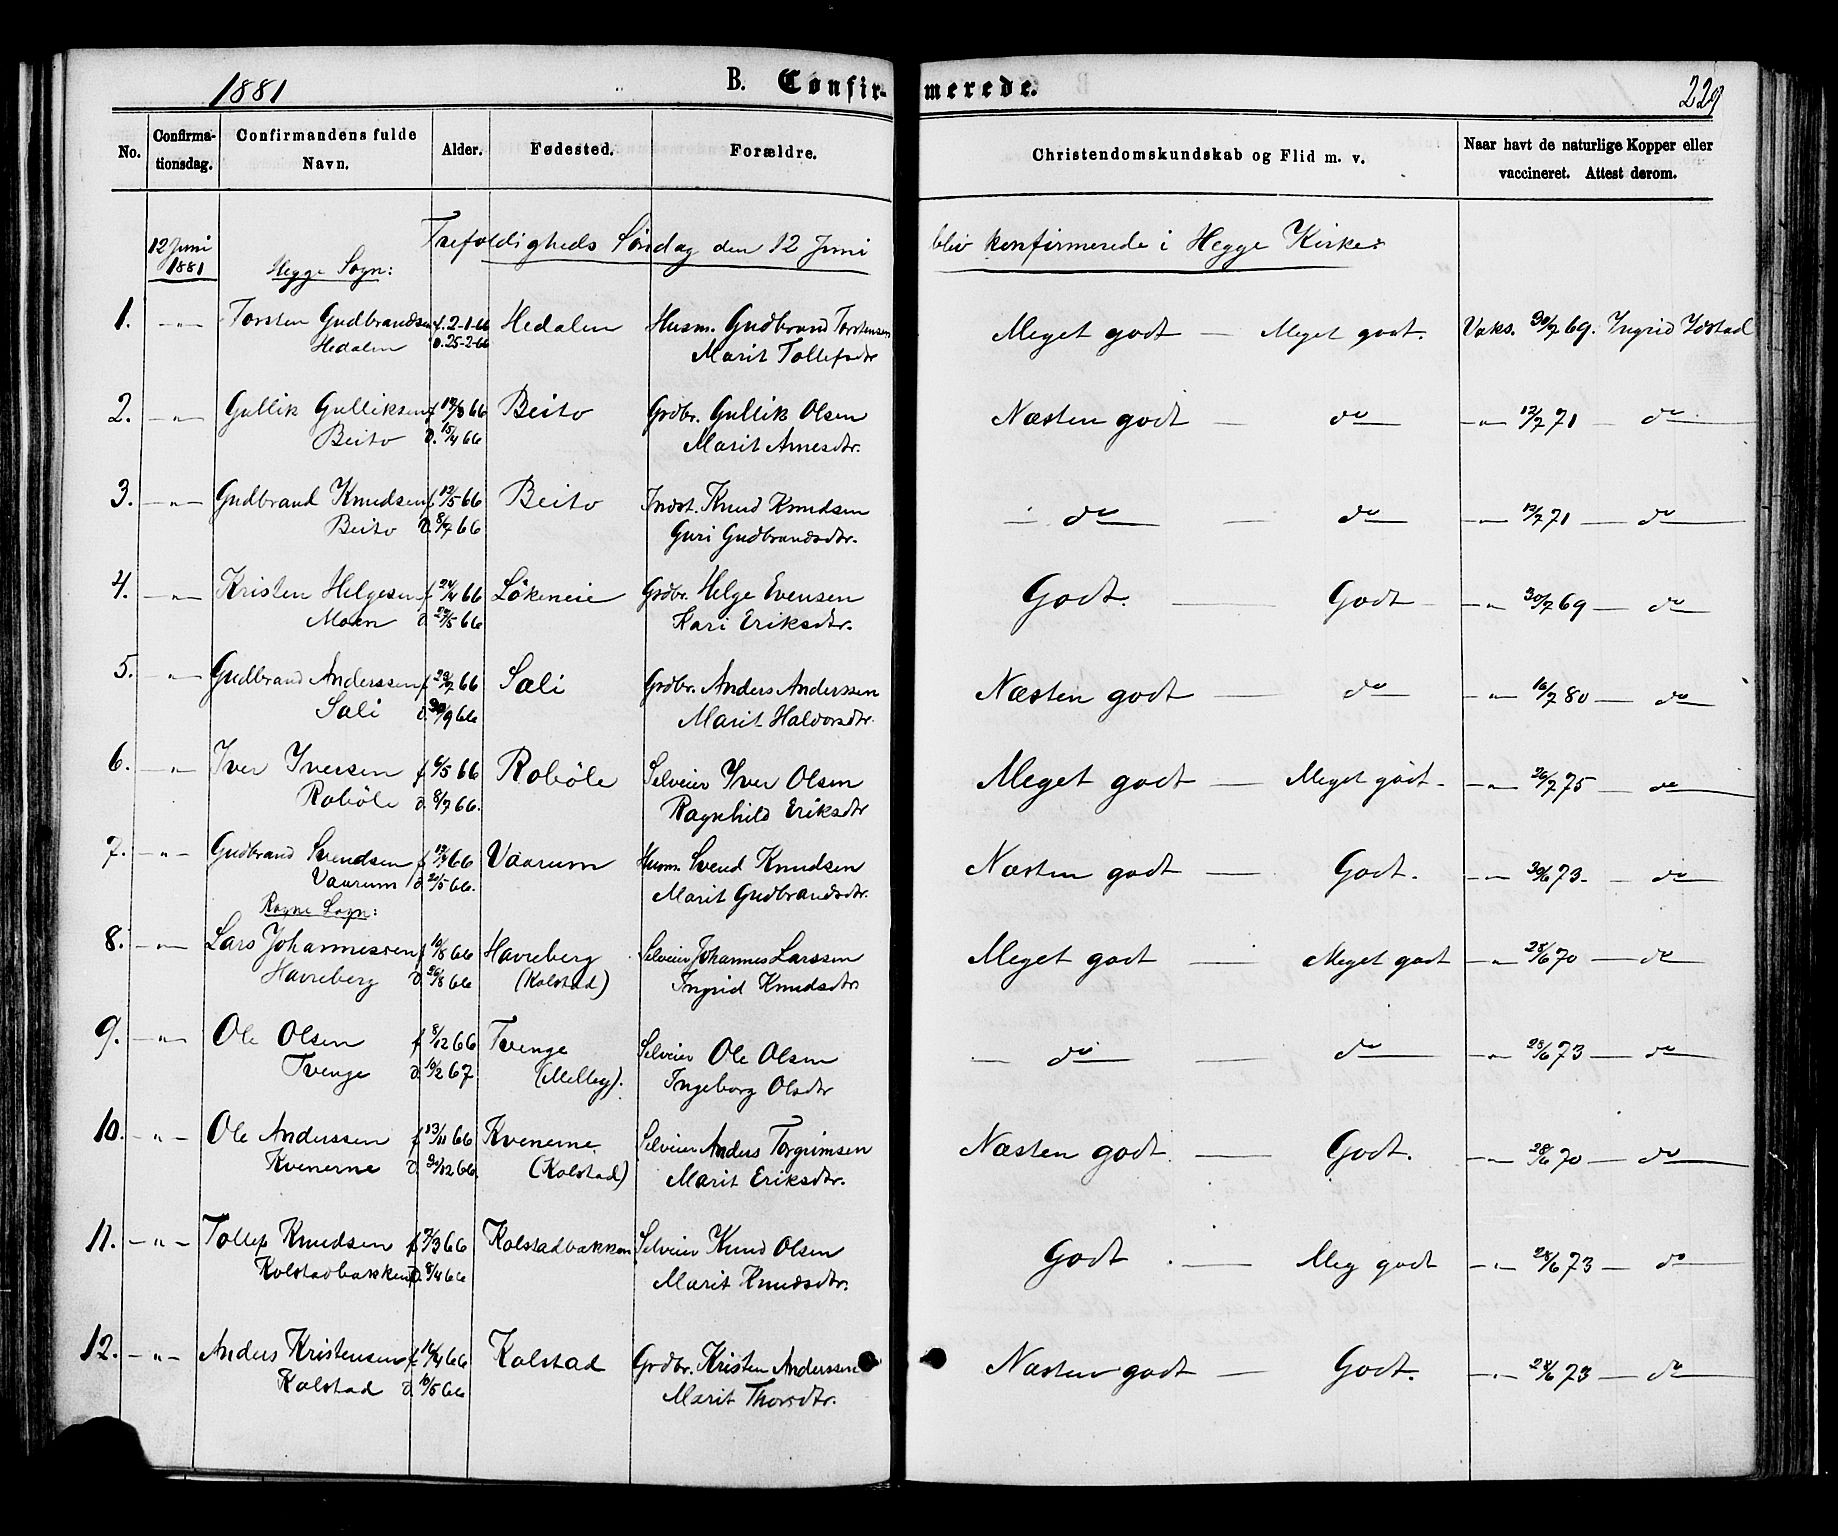 1881 B. Confirmerede. 229
No. Confirmationsdag. Confirmandens fulde Navn. Alder. Fødested. Forældre. Christendomskundskab og Flid m. v. Naar havt de naturlige Kopper eller vaccineret. Attest derom.
12 Juni 1881 Trefoldigheds Söndag den 12 Juni blev konfirmerede i Hegge Kirke:
Hegge Sogn:
1. — " — Torsten Gudbrandsen f. 2-1-66 Hedalen Husm. Gudbrand Torstensen Meget godt — Meget godt. Vaks. 30/7 69. Ingrid Idstad
Hedalen d. 25-2-66 Marit Tollefsdtr
2. — " — Gullik Gulliksen f 19/3 66 Beito Grdbr. Gullik Olsen Næsten godt — do — " — 12/7 71 — do
Beito d. 15/4 66 Marit Arnesdtr.
3. — " — Gudbrand Knudsen f 12/5 66 Beito Inderst. Knud Knudsen — do — do — " — 12/7 71 — do
Beito d. 8/7 66 Guri Gudbrandsdtr.
4. — " — Kristen Helgesen f 24/4 66 Lökeneie Grdbr. Helge Evensen Godt. — Godt — " — 30/7 69 — do
Moen d. 29/5 66 Kari Eriksdtr.
5. — " — Gudbrand Anderssen f 29/7 66 Sæli Grdbr. Anders Anderssen Næsten godt — do — " — 16/7 80 — do
Sæli d. 30/9 66 Marit Halvorsdtr.
6. — " — Iver Iversen f 6/5 66 Roböle Selveier Iver Olsen Meget godt — Meget godt — " — 26/7 75 — do
Roböle d. 8/7 66. Ragnhild Eriksdtr
7. — " — Gudbrand Svendsen f 19/4 66 Vaarum Husm. Svend Knudsen Næsten godt — Godt. — " — 30/6 73. — do
Vaarum d 20/5 66. Marit Gudbrandsdtr.
Rogne Sogn:
8. — " — Lars Johannessen f 10/8 66 Havreberg Selveier Johannes Larssen Meget godt — Meget godt — " — 28/6 70 — do
Havreberg d 26/8 66 (Kolstad) Ingrid Knudsdtr
9. — " — Ole Olsen f 8/12 66 Tvenge Selveier Ole Olsen — do — do — " — 28/6 73 — do
Tvenge d. 10/2 67. (Melbey). Ingeborg Olsdtr
10. — " — Ole Anderssen f 13/11 66 Kvenerne Selveier Anders Torgrimsen Næsten godt. — Godt. — " — 28/6 70 — do
Kvenerne d 26/12 66. (Kolstad) Marit Eriksdtr.
11. — " — Tollef Knudsen f 7/3 66 Kolstadbakken Selveier Knud Olsen Godt. — Meg godt — " — 28/6 73 — do
Kolstadbakken d. 8/4 66 Marit Knudsdtr.
12. — " — Anders Kristensen f. 16/4 66 Kolstad Grdbr. Kristen Anderssen Næsten godt — Godt. — " — 28/6 73 — do
Kolstad d. 10/5 66 Marit Thorsdtr.